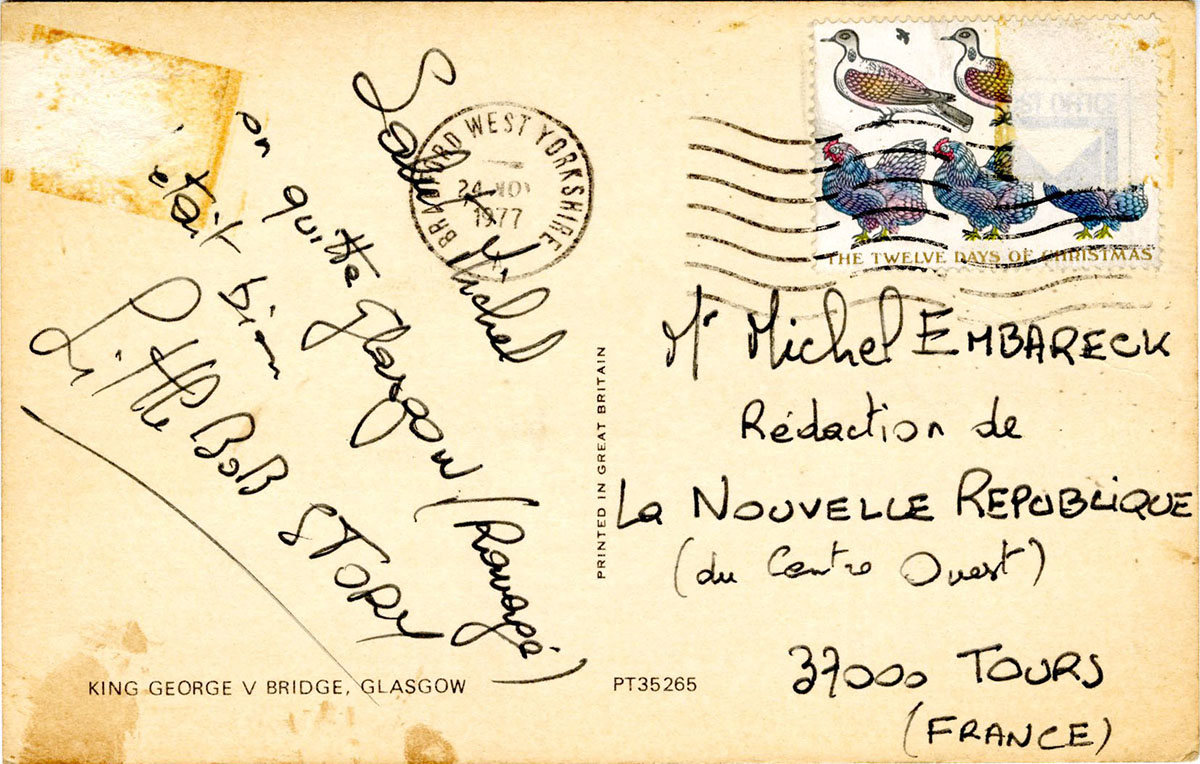 Salut Michel
on quitte Glasgow (Ravagé)
'était bien
LiTTLE BOB STORY
KING GEORGE V BRIDGE, GLASGOW
PRINTED IN GREAT BRITAIN
PT35265
BRADFORD WEST YORKSHIRE
24 NOV
1977
THE TWELVE DAYS OF CHRISTMAS
Mr Michel EMBARECK
Rédaction de
La NOUVELLE REPUBLIQUE
(du Centre Ouest)
37000 TOURS
(FRANCE)